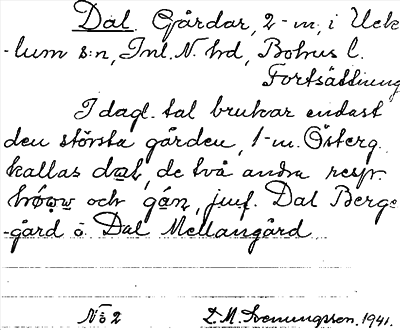 Dal. Gårdar, 2-m, i Ucke
-lum s:n, Inl. N. hd, Bohus l.
Fortsättning
I dagl. tal brukar endast
den största gården, 1-m. Österg.
kallas dat, de två andra resp.
och gán, jmf. Dal Berge
-gård o. Dal Mellangård
No 2 L. M. Svenungsson. 1941.